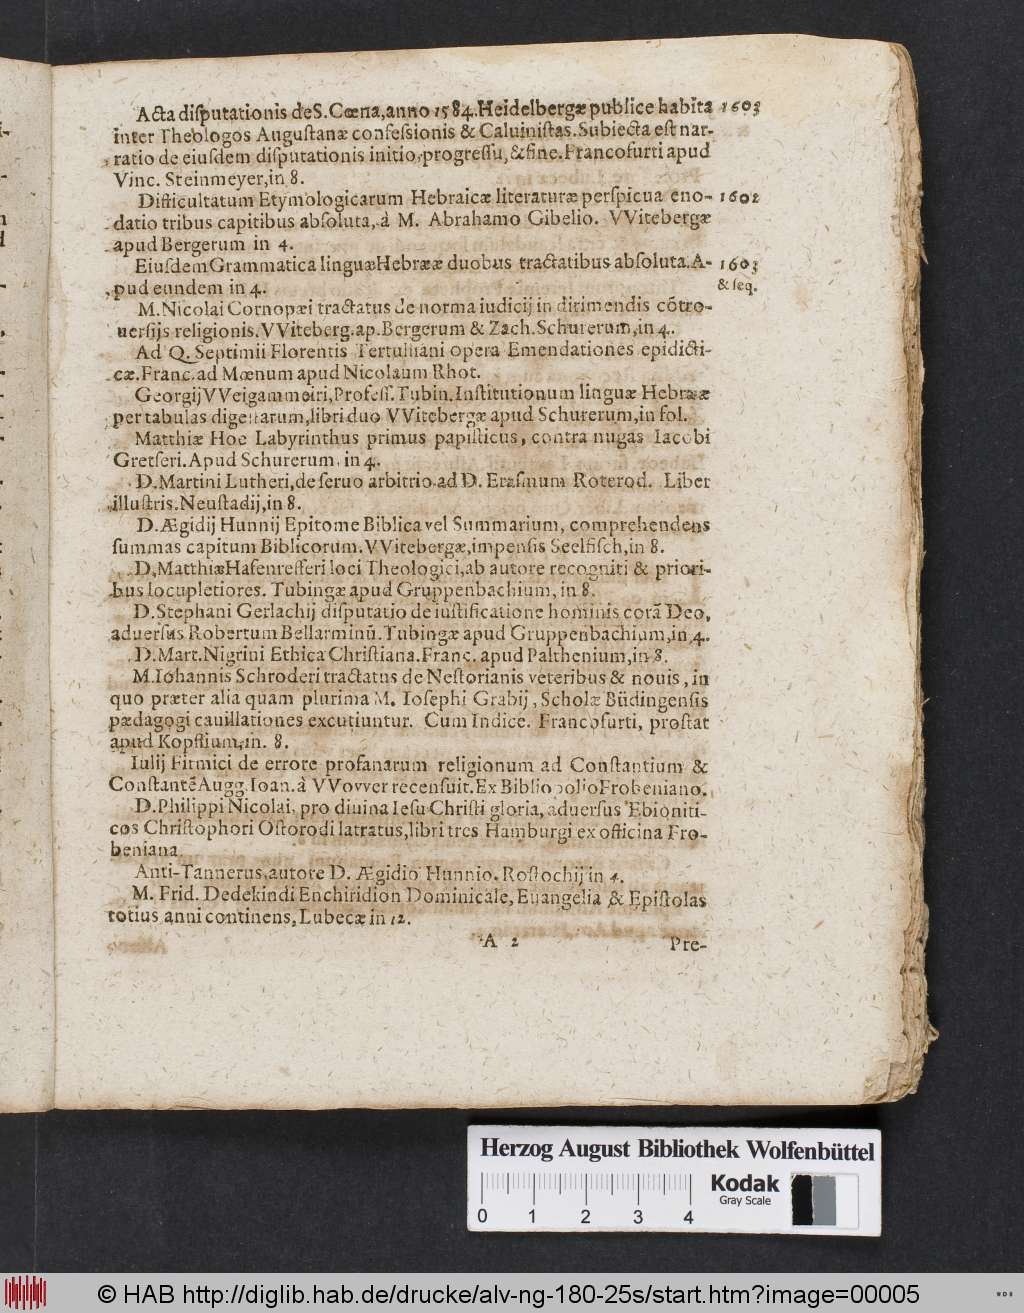 Acta disputationis de S. Cœna, anno 1584. Heidelbergæ publice habita 1603
inter Theologos Augustanæ confessionis & Caluinistas. Subiecta est nar-
ratio de eiusdem disputationis initio, progressu, & fine. Francofurti apud
Vinc. Steinmeyer, in 8.
Difficultatum Etymologicarum Hebraicæ literaturæ perspicua eno- 1602
datio tribus capitibus absoluta, à M. Abrahamo Gibelio. VVitebergæ
apud Bergerum in 4.
Eiusdem Grammatica linguæ Hebrææ duobus tractatibus absoluta. A- 1603
pud eundem in 4. & seq.
M. Nicolai Cornopæi tractatus de norma iudicij in dirimendis cõtro-
uersijs religionis. VViteberg. ap. Bergerum & Zach. Schurerum, in 4.
Ad Q. Septimii Florentis Tertulliani opera Emendationes epidicti-
cæ. Franc. ad Mœnum apud Nicolaum Rhot.
Georgij VVeigammeiri, Profess. Tubin. Institutionum linguæ Hebrææ
per tabulas digestarum, libri duo VVitebergæ apud Schurerum, in fol.
Matthiæ Hoe Labyrinthus primus papisticus, contra nugas Iacobi
Gretseri. Apud Schurerum, in 4.
D. Martini Lutheri, de seruo arbitrio, ad D. Erasmum Roterod. Liber
illustris. Neustadij, in 8.
D. Ægidij Hunnij Epitome Biblica vel Summarium, comprehendens
summas capitum Biblicorum. VVitebergæ, impensis Seelfisch, in 8.
D, Matthiæ Hafenrefferi loci Theologici, ab autore recogniti & priori-
bus locupletiores. Tubingæ apud Gruppenbachium, in 8.
D. Stephani Gerlachij disputatio de iustificatione hominis corã Deo,
aduersus Robertum Bellarminũ. Tubingæ apud Gruppenbachium, in 4.
D. Mart. Nigrini Ethica Christiana. Franc. apud Palthenium, in 8.
M. Iohannis Schroderi tractatus de Nestorianis veteribus & nouis, in
quo præter alia quam plurima M. Iosephi Grabij, Scholæ Büdingensis
pædagogi cauillationes excutiuntur. Cum Indice. Francofurti, prostat
apud Kopffium, in. 8.
Iulij Firmici de errore profanarum religionum ad Constantium &
Constantẽ Augg. Ioan. à VVovver recensuit. Ex Bibliopolio Frobeniano.
D. Philippi Nicolai, pro diuina Iesu Christi gloria, aduersus Ebioniti-
cos Christophori Ostorodi latratus, libri tres Hamburgi ex officina Fro-
beniana.
Anti-Tannerus, autore D. Ægidio Hunnio. Rostochij in 4.
M. Frid. Dedekindi Enchiridion Dominicale, Euangelia & Epistolas
totius anni continens, Lubecæ in 12.
A 2 Pre-
Herzog August Bibliothek Wolfenbüttel
Kodak
Gray Scale
0 1 2 3 4
© HAB http://diglib.hab.de/drucke/alv-ng-180-25s/start.htm?image=00005